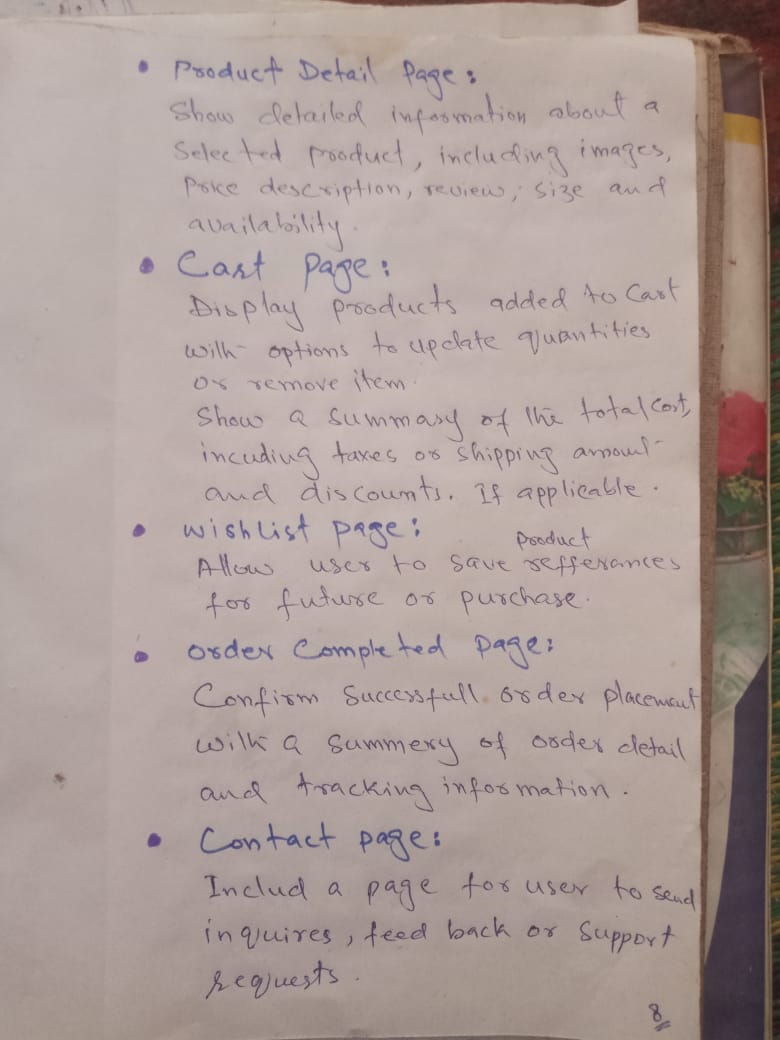 • Product Detail Page:
Show detailed information about a
Selected product, including images,
Price description, review, size and
availability.
• Cart Page:
Display products added to Cart
with options to update quantities
or remove item.
Show a summary of the total Cost,
incuding taxes or shipping amount
and discounts. If applicable.
• wishlist page:
product
Allow user to save refferances
for future or purchase.
• order Completed page:
Confirm Successfull order placement
with a summery of order detail
and tracking information.
• Contact page:
Includ a page for user to send
inquires, feed back or Support
requests.
8